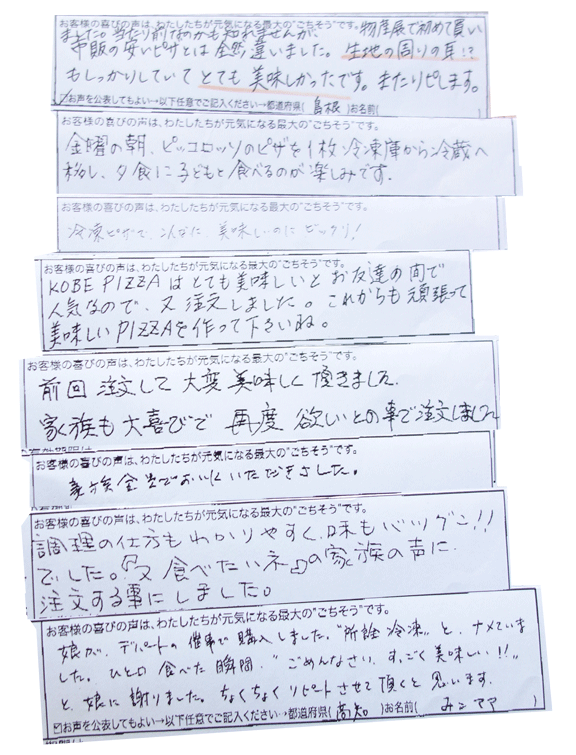 お客様の喜びの声は、わたしたちが元気になる最大の"ごちそう"です。物産展で初めて買い
ました。当たり前なのかも知れませんが、
市販の安いピザとは全然違いました。生地の周りの耳!?
もしっかりしていてとても美味しかったです。またリピします。
お声を公表してもよい→以下任意でご記入ください→都道府県(島根)お名前(
お客様の喜びの声は、わたしたちが元気になる最大の"ごちそう"です。
金曜の朝、ピッコロッソのピザを1枚冷凍庫から冷蔵へ
移し、夕食に子どもと食べるのが楽しみです。
お客様の喜びの声は、わたしたちが元気になる最大の"ごちそう"です。
冷凍ピザで、こんなに美味しいのにビックリ!
お客様の喜びの声は、わたしたちが元気になる最大の"ごちそう"です。
KOBE PIZZAはとても美味しいとお友達の間で
人気なので、又注文しました。これからも頑張って
美味しいPIZZAを作って下さいね。
お客様の喜びの声は、わたしたちが元気になる最大の"ごちそう"です。
前回注文して大変美味しく頂きました。
家族も大喜びで再度欲しいとの事で注文しました
お客様の喜びの声は、わたしたちが元気になる最大の"ごちそう"です。
家族全員でおいしくいただきました。
お客様の喜びの声は、わたしたちが元気になる最大の"ごちそう"です。
調理の仕方もわかりやすく、味もバツグン!!
でした。「又食べたいネ♪」の家族の声に
注文する事にしました。
お客様の喜びの声は、わたしたちが元気になる最大の"ごちそう"です。
娘が、デパートの催事で購入しました。"所詮冷凍"と、ナメていま
した。ひと口食べた瞬間、"ごめんなさい、すっごく美味しい!!"
と、娘に謝りました。ちょくちょくリピートさせて頂くと思います。
お声を公表してもよい→以下任意でご記入ください→都道府県(高知)お名前(みこママ)